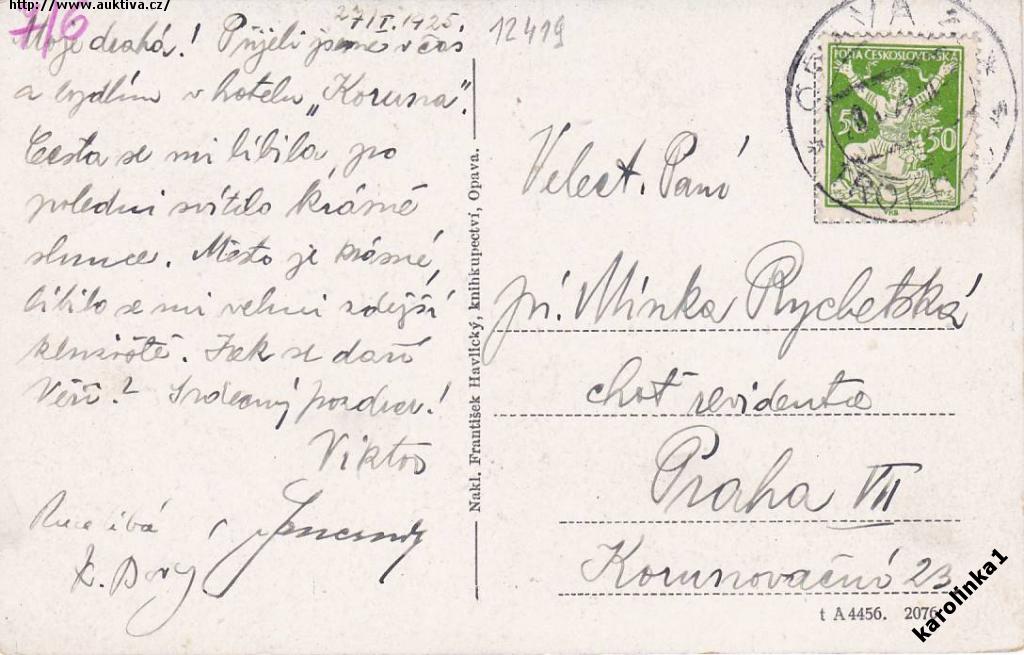 http://www.auktiva.cz/
7/6
12419
Moje drahá! Přijeli jsme včas
a bydlím v hotelu „Koruna".
Cesta se mi líbila, po
poledni svítilo krásné
slunce. Město je krásné,
líbilo se mi velmi zdejší
Jak se daří
Věři? Srdečný pozdrav!
Viktor
Ruce líbá
Nakl. František Havlický, knihkupectví, Opava.
OPAVA
POŠTA ČESKOSLOVENSKÁ
50 50
Velect. Paní
pí. Minka Rychetská
choť revidenta
Praha VII
Korunovační 23
t A 4456. 2076
karolinka1